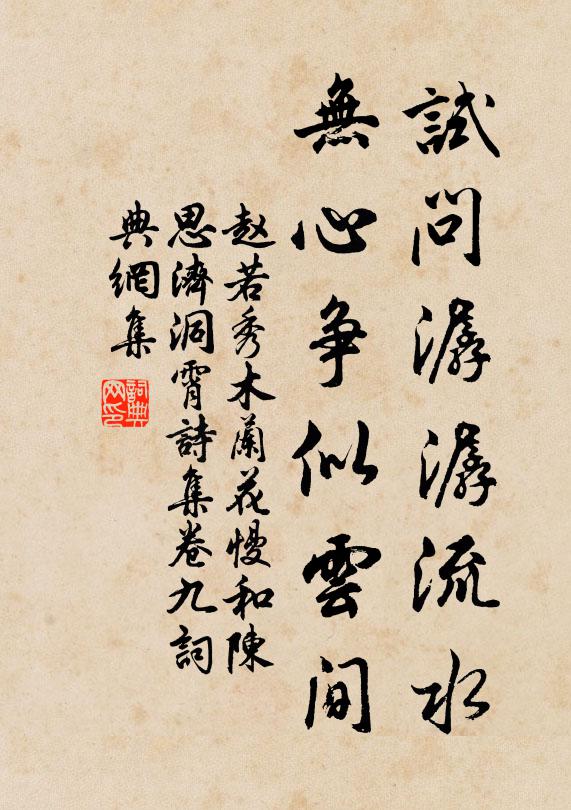 試問潺潺流水
無心争似雲間
赵若秀木蘭花慢和陳
思濟洞霄詩集卷九詞
典網集
詞典
网印